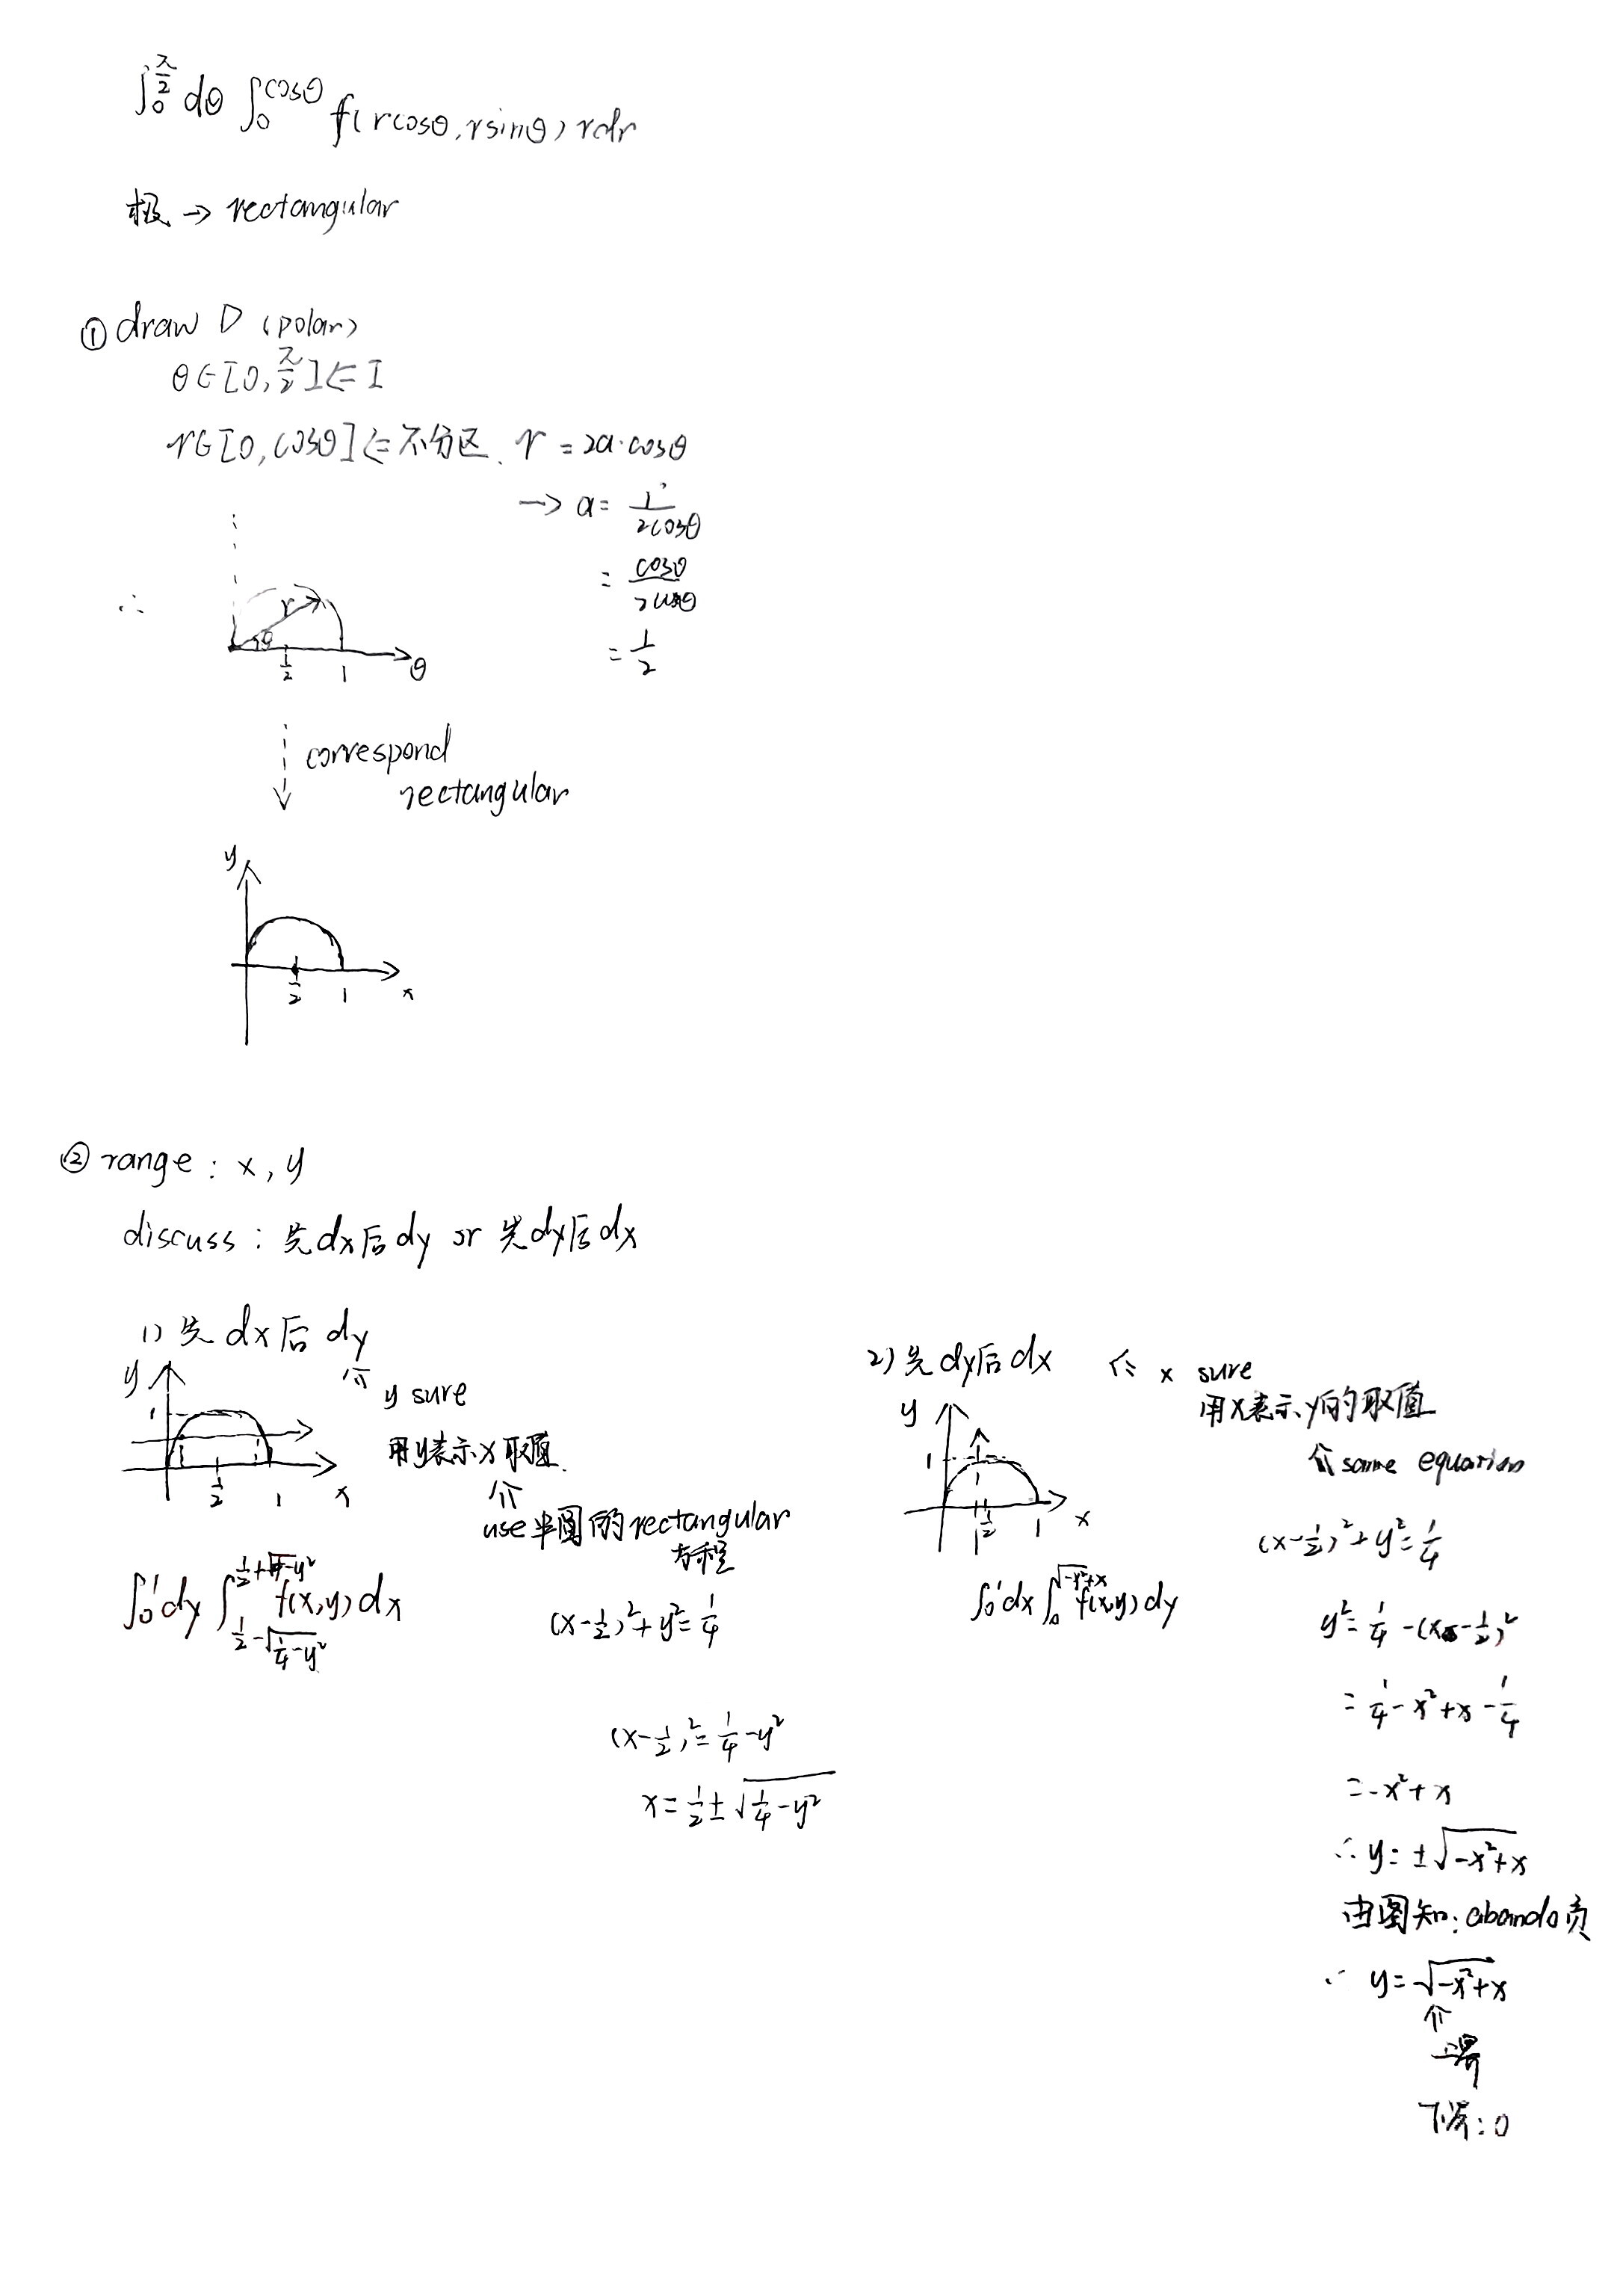 ∫₀^{π/2} dθ ∫₀^{cosθ} f(rcosθ, rsinθ) rdr
极 → rectangular
① draw D (polar)
θ∈[0, π/2] ⇐ I
r∈[0, cosθ] ⇐ 不分区. r = 2a·cosθ
→ a = r/2cosθ
= cosθ/2cosθ
= 1/2
∴
r
θ
1/2 1 θ
correspond
rectangular
y
1/2 1 x
② range : x, y
discuss : 先dx后dy or 先dy后dx
1) 先dx后dy
⇑ y sure
用y表示x取值
⇑
use半圆的rectangular
方程
y
1
1/2 1 x
∫₀¹dy ∫_{1/2-√(1/4-y²)}^{1/2+√(1/4-y²)} f(x,y) dx
(x-1/2)²+y²=1/4
(x-1/2)²=1/4-y²
x=1/2±√(1/4-y²)
2) 先dy后dx ⇐ x sure
用x表示y的取值
⇑ same equation
y
1
1/2 1 x
∫₀¹dx ∫₀^{√(-x²+x)} f(x,y) dy
(x-1/2)²+y²=1/4
y²=1/4-(x-1/2)²
=1/4-x²+x-1/4
=-x²+x
∴ y=±√(-x²+x)
由图知: abando负
∴ y=√(-x²+x)
⇑
上界
下界:0